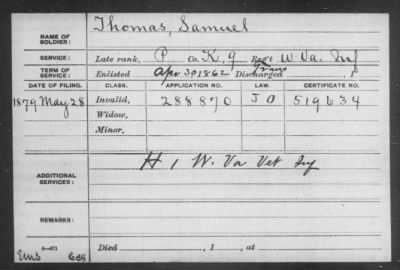 Thomas, Samuel
NAME OF SOLDIER:
SERVICE: Late rank, P Co. K, 9 Reg't W. Va. Inf
TERM OF SERVICE: Enlisted Apr 30 1862 Discharged Trans, 1
DATE OF FILING. CLASS. APPLICATION NO. LAW. CERTIFICATE NO.
1879 May 28 Invalid, 288870 J O 519634
Widow,
Minor,
ADDITIONAL SERVICES: H 1 W. Va Vet Inf
REMARKS:
Died , 1 , at